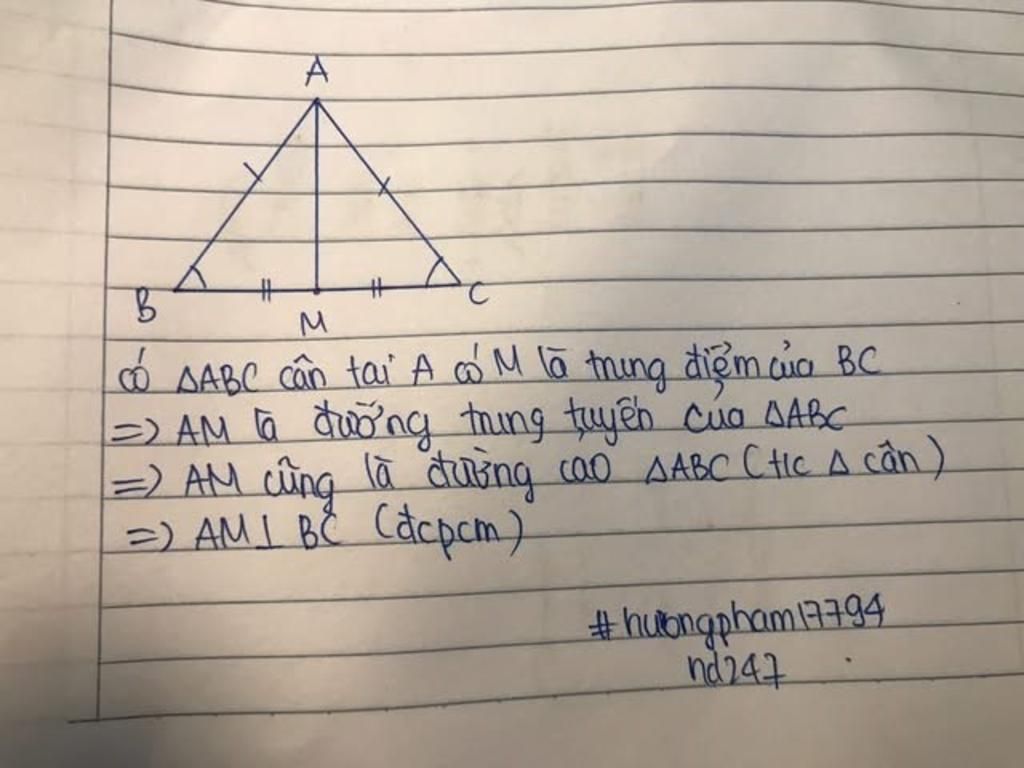 A
B
M
C
có ΔABC cân tai A có M là trung điểm của BC
=> AM là đường trung tuyến của ΔABC
=> AM cũng là đường cao ΔABC (t/c Δ cân)
=> AM⊥ BC (đcpcm)
#huongpham17794
nd247